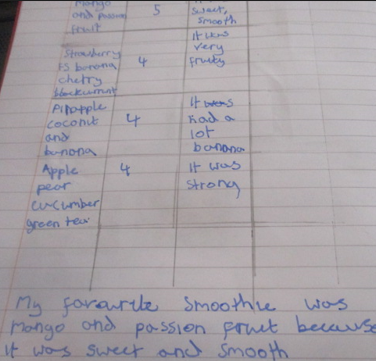 Mango
and passion
fruit
5
sweet,
smooth
Strawberry
banana
cherry
blackcurrant
4
It was
very
fruity
Pinapple
coconut
and
banana
4
It was
had a
lot
banana
Apple
pear
cucumber
green tea
4
It was
strong
My favourite smoothie was
mango and passion fruit because
it was sweet and smooth